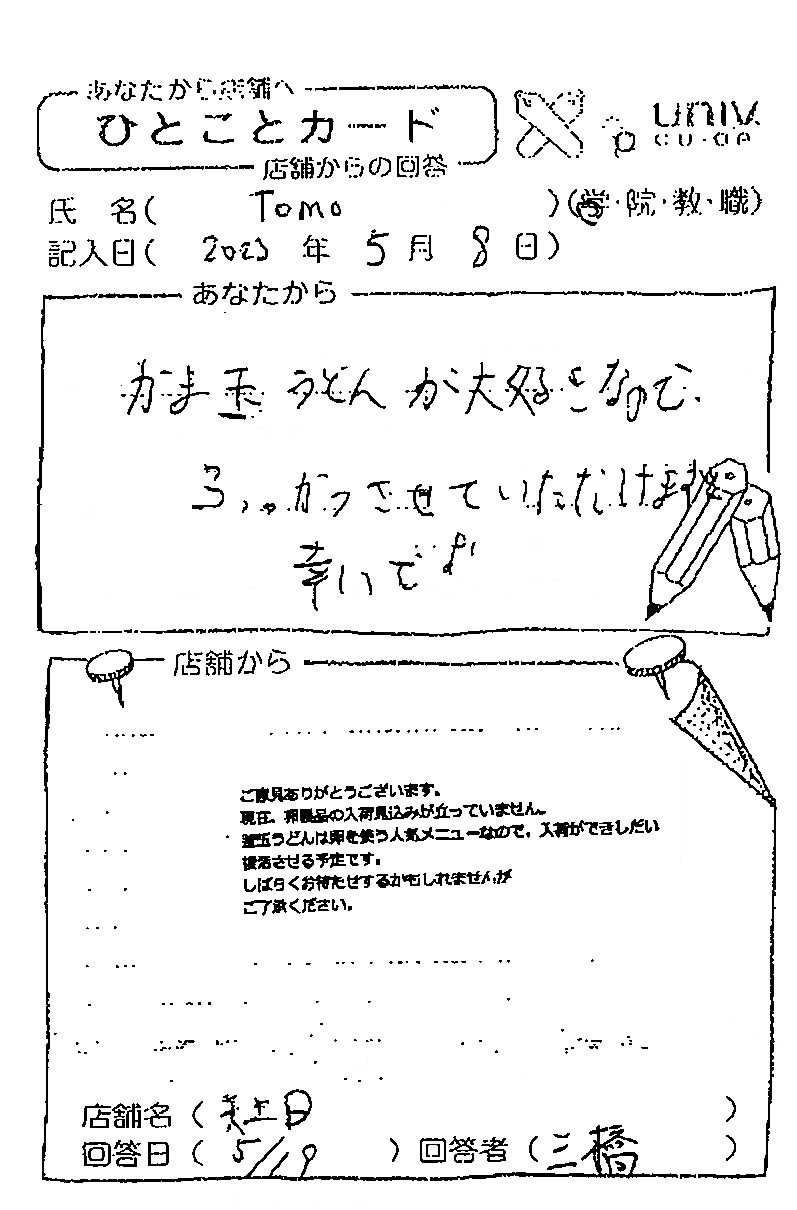 あなたから店舗へ
ひとことカード
店舗からの回答
UNIV
CO-OP
氏 名( Tomo )(学・院・教・職)
記入日( 2023 年 5 月 8 日)
あなたから
かま玉 うどん が大好きなので、
ふっかつさせていただければ
幸いです
店舗から
ご意見ありがとうございます。
現在、卵製品の入荷見込みが立っていません。
釜玉うどんは卵を使う人気メニューなので、入荷ができしだい
復活させる予定です。
しばらくお待たせするかもしれませんが
ご了承ください。
店舗名( )
回答日( 5/19 ) 回答者(三橋 )